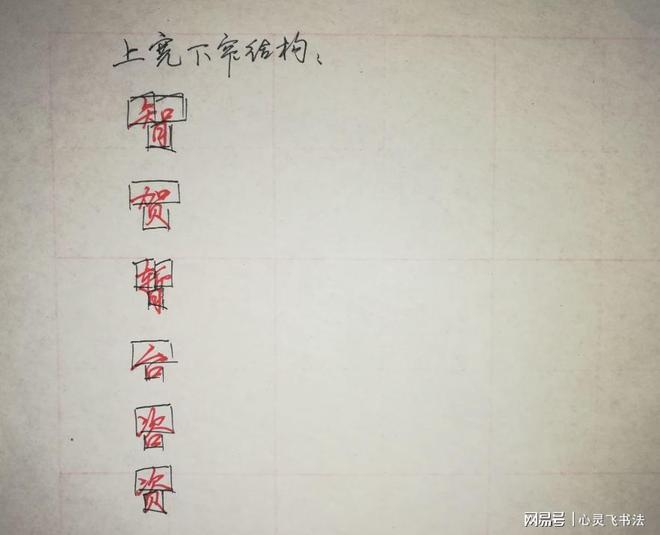 上宽下窄结构：
智
贺
暂
台
咨
资
网易号 | 心灵飞书法